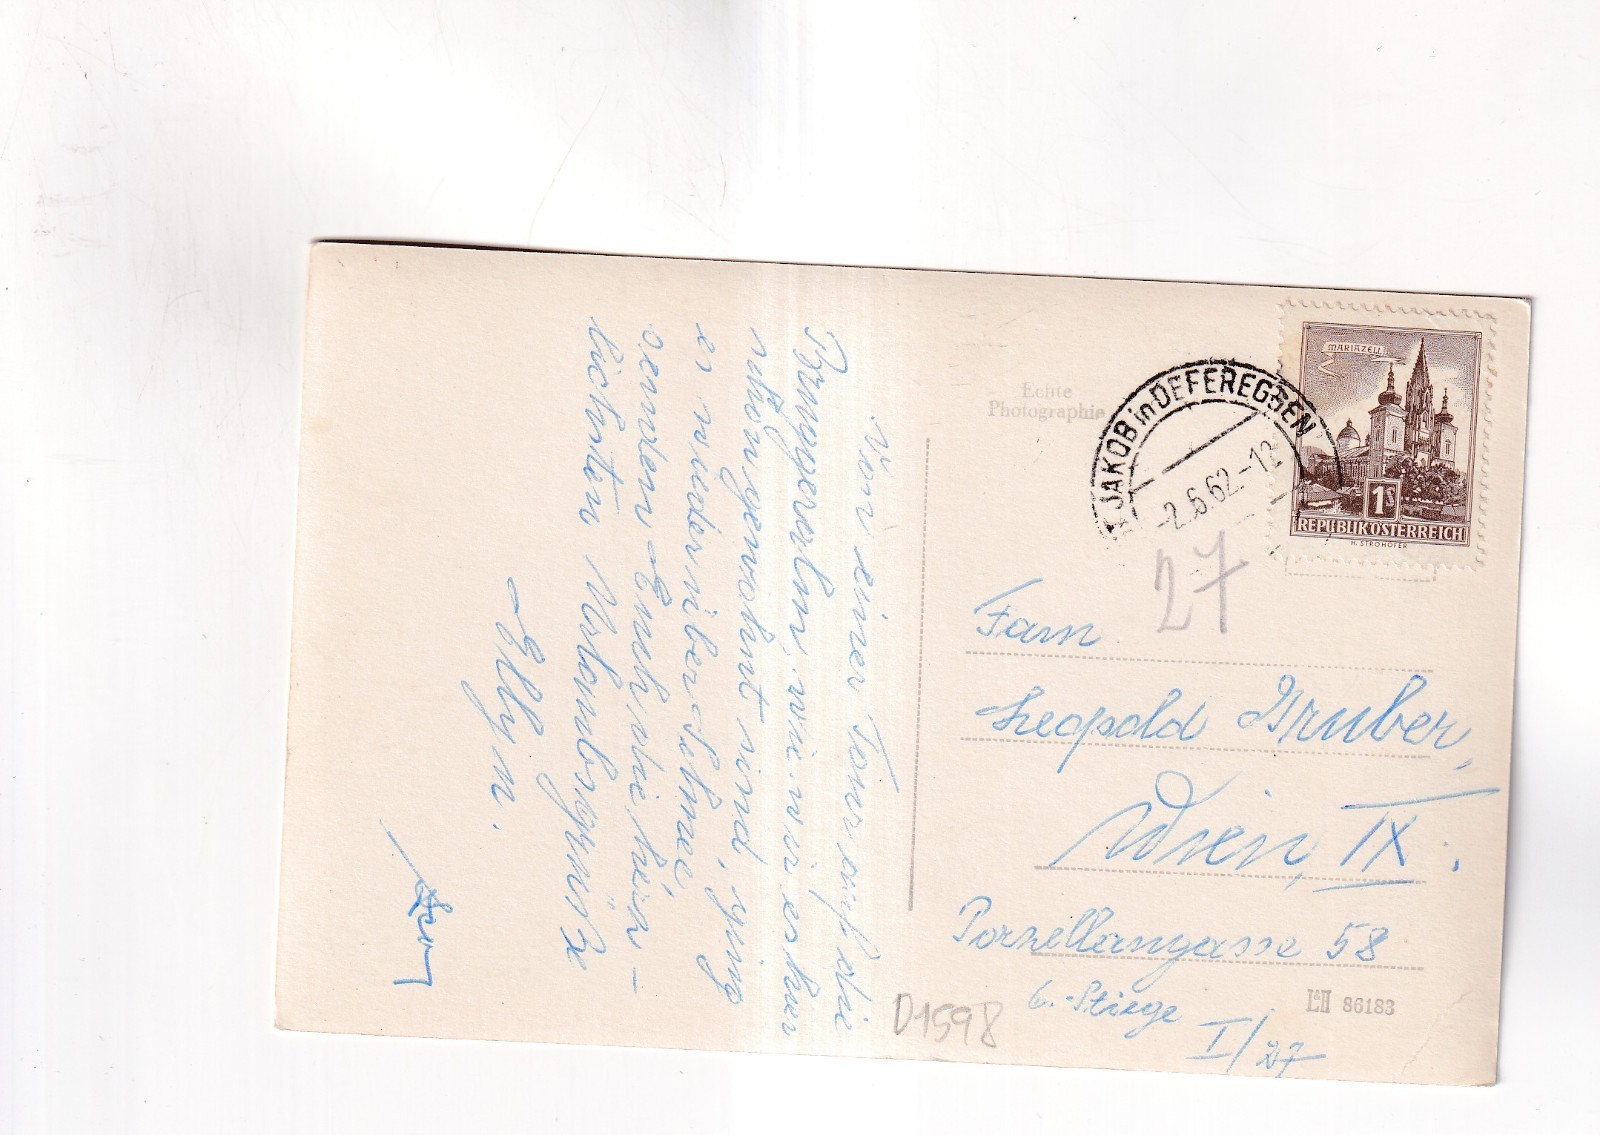 Von einer Tour auf die
Bruggeralm, wie wir es hier
schon gewohnt sind, ging
es wieder über Schnee,
senden Euch die herz-
lichsten Urlaubsgrüße
Echte
Photographie
ST. JAKOB in DEFEREGGEN
-2.6.62.-12
MARIAZELL
1S
REPUBLIK ÖSTERREICH
H. STROHOFER
27
Fam
Leopold Gruber,
Wien, IX.
Porzellangasse 58
6.-Stiege
I/27
L&H 86183
D1598